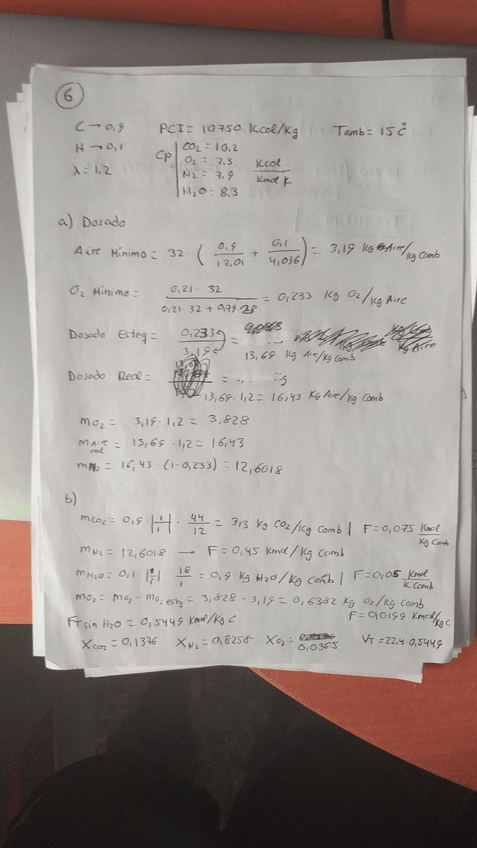 6
C → 0,9 PCI = 10750 Kcal/Kg Tamb = 15°C
H → 0,1 Cp CO2 = 10,2
λ = 1,2 O2 = 7,3 Kcal/Kmol K
N2 = 7,9
H2O = 8,3
a) Dosado
Aire Mínimo = 32 · ( 0,9/12,01 + 0,1/4,036 ) = 3,19 Kg Aire/Kg Comb
O2 Mínimo = 0,21 · 32 / 0,21 · 32 + 0,79 · 28 = 0,233 Kg O2/Kg Aire
Dosado Esteq = 0,233 / 3,19 = 13,69 Kg Aire/Kg Comb
Dosado Real = 13,69 · 1,2 = 16,43 Kg Aire/Kg Comb
mO2 = 3,19 · 1,2 = 3,828
mAire real = 13,69 · 1,2 = 16,43
mN2 = 16,43 · (1-0,233) = 12,6018
b)
mCO2 = 0,9 · |1/1| · 44/12 = 3,3 Kg CO2/Kg Comb | F = 0,075 Kmol/Kg Comb
mN2 = 12,6018 → F = 0,45 Kmol/Kg Comb
mH2O = 0,1 |1/1| 18/1 = 0,9 Kg H2O/Kg Comb | F = 0,05 Kmol/K Comb
mO2 = mO2 - mO2 esteq = 3,828 - 3,19 = 0,6382 Kg O2/Kg Comb
FT sin H2O = 0,5449 Kmol/Kg C F = 0,0199 Kmol/Kg C
XCO2 = 0,1376 XN2 = 0,8258 XO2 = 0,0365 VT = 22,4 · 0,5449